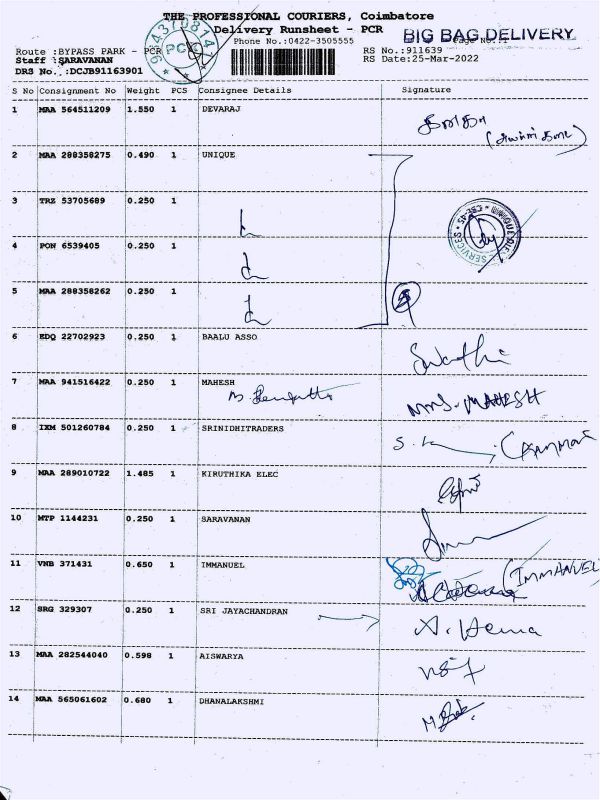 THE PROFESSIONAL COURIERS, Coimbatore
Delivery Runsheet - PCR
BIG BAG DELIVERY
Phone No.:0422-3505555
Route :BYPASS PARK - PCR
RS No.:911639
Staff :SARAVANAN
RS Date:25-Mar-2022
DRS No.:DCJB91163901
PCC
S No Consignment No Weight PCS Consignee Details Signature
1 MAA 564511209 1.550 1 DEVARAJ
2 MAA 288358275 0.490 1 UNIQUE
3 TRZ 53705689 0.250 1
4 PON 6539405 0.250 1
5 MAA 288358262 0.250 1
6 EDQ 22702923 0.250 1 BAALU ASSO Swathi
7 MAA 941516422 0.250 1 MAHESH MRS. MAHESH
8 IXM 501260784 0.250 1 SRINIDHITRADERS
9 MAA 289010722 1.485 1 KIRUTHIKA ELEC
10 MTP 1144231 0.250 1 SARAVANAN
11 VNB 371431 0.650 1 IMMANUEL (IMMANUEL
12 SRG 329307 0.250 1 SRI JAYACHANDRAN A. Hema
13 MAA 282544040 0.598 1 AISWARYA
14 MAA 565061602 0.680 1 DHANALAKSHMI